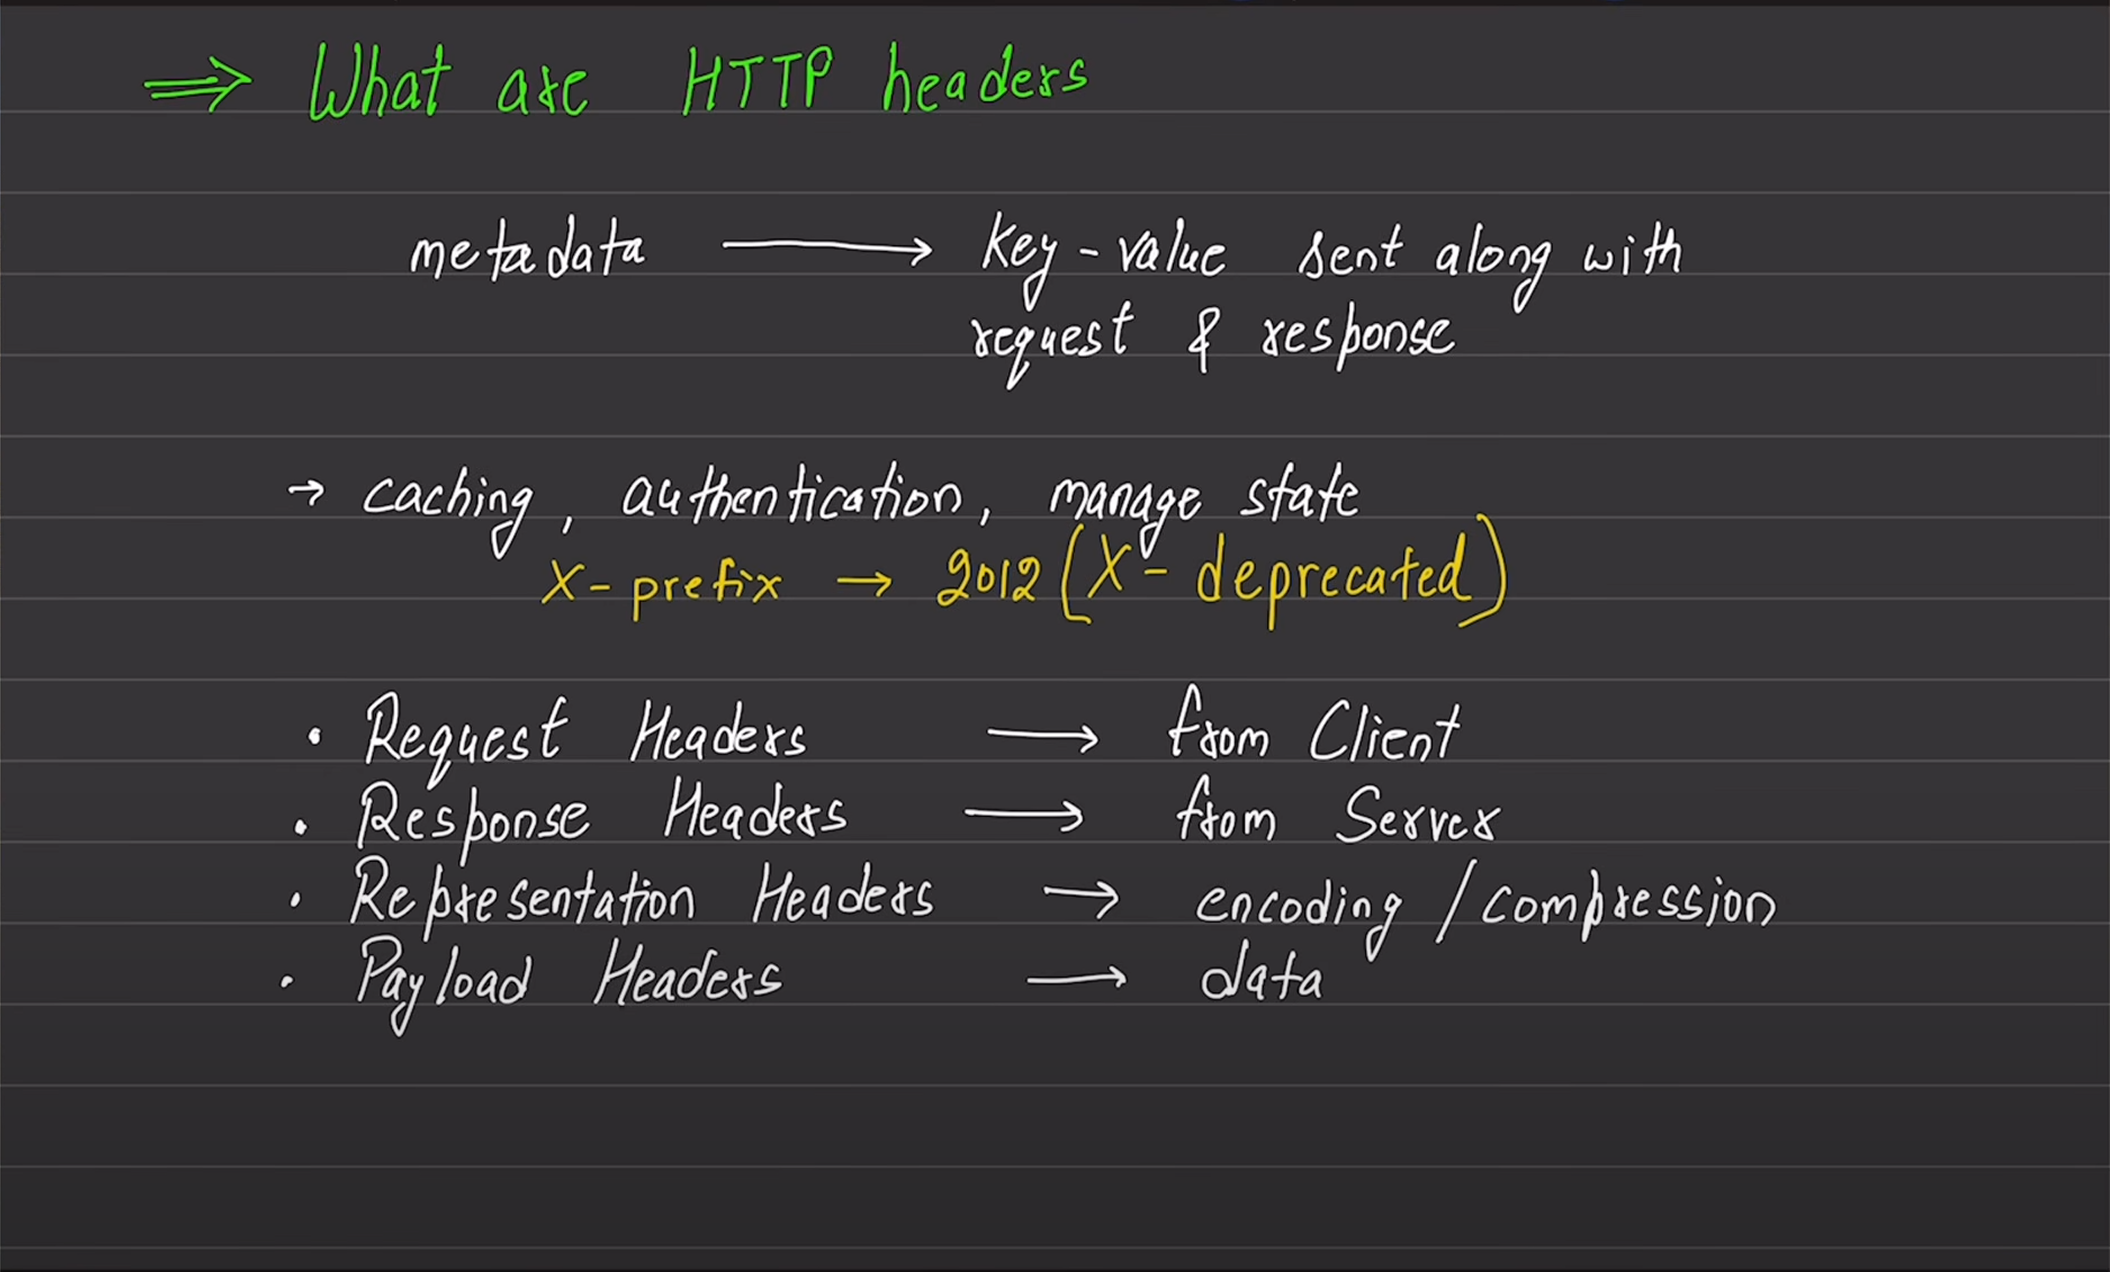 ⇒ What are HTTP headers
metadata ⟶ key-value sent along with
request & response
→ caching, authentication, manage state
X-prefix → 2012 (X- deprecated)
• Request Headers ⟶ from Client
• Response Headers ⟶ from Server
• Representation Headers → encoding / compression
• Payload Headers ⟶ data